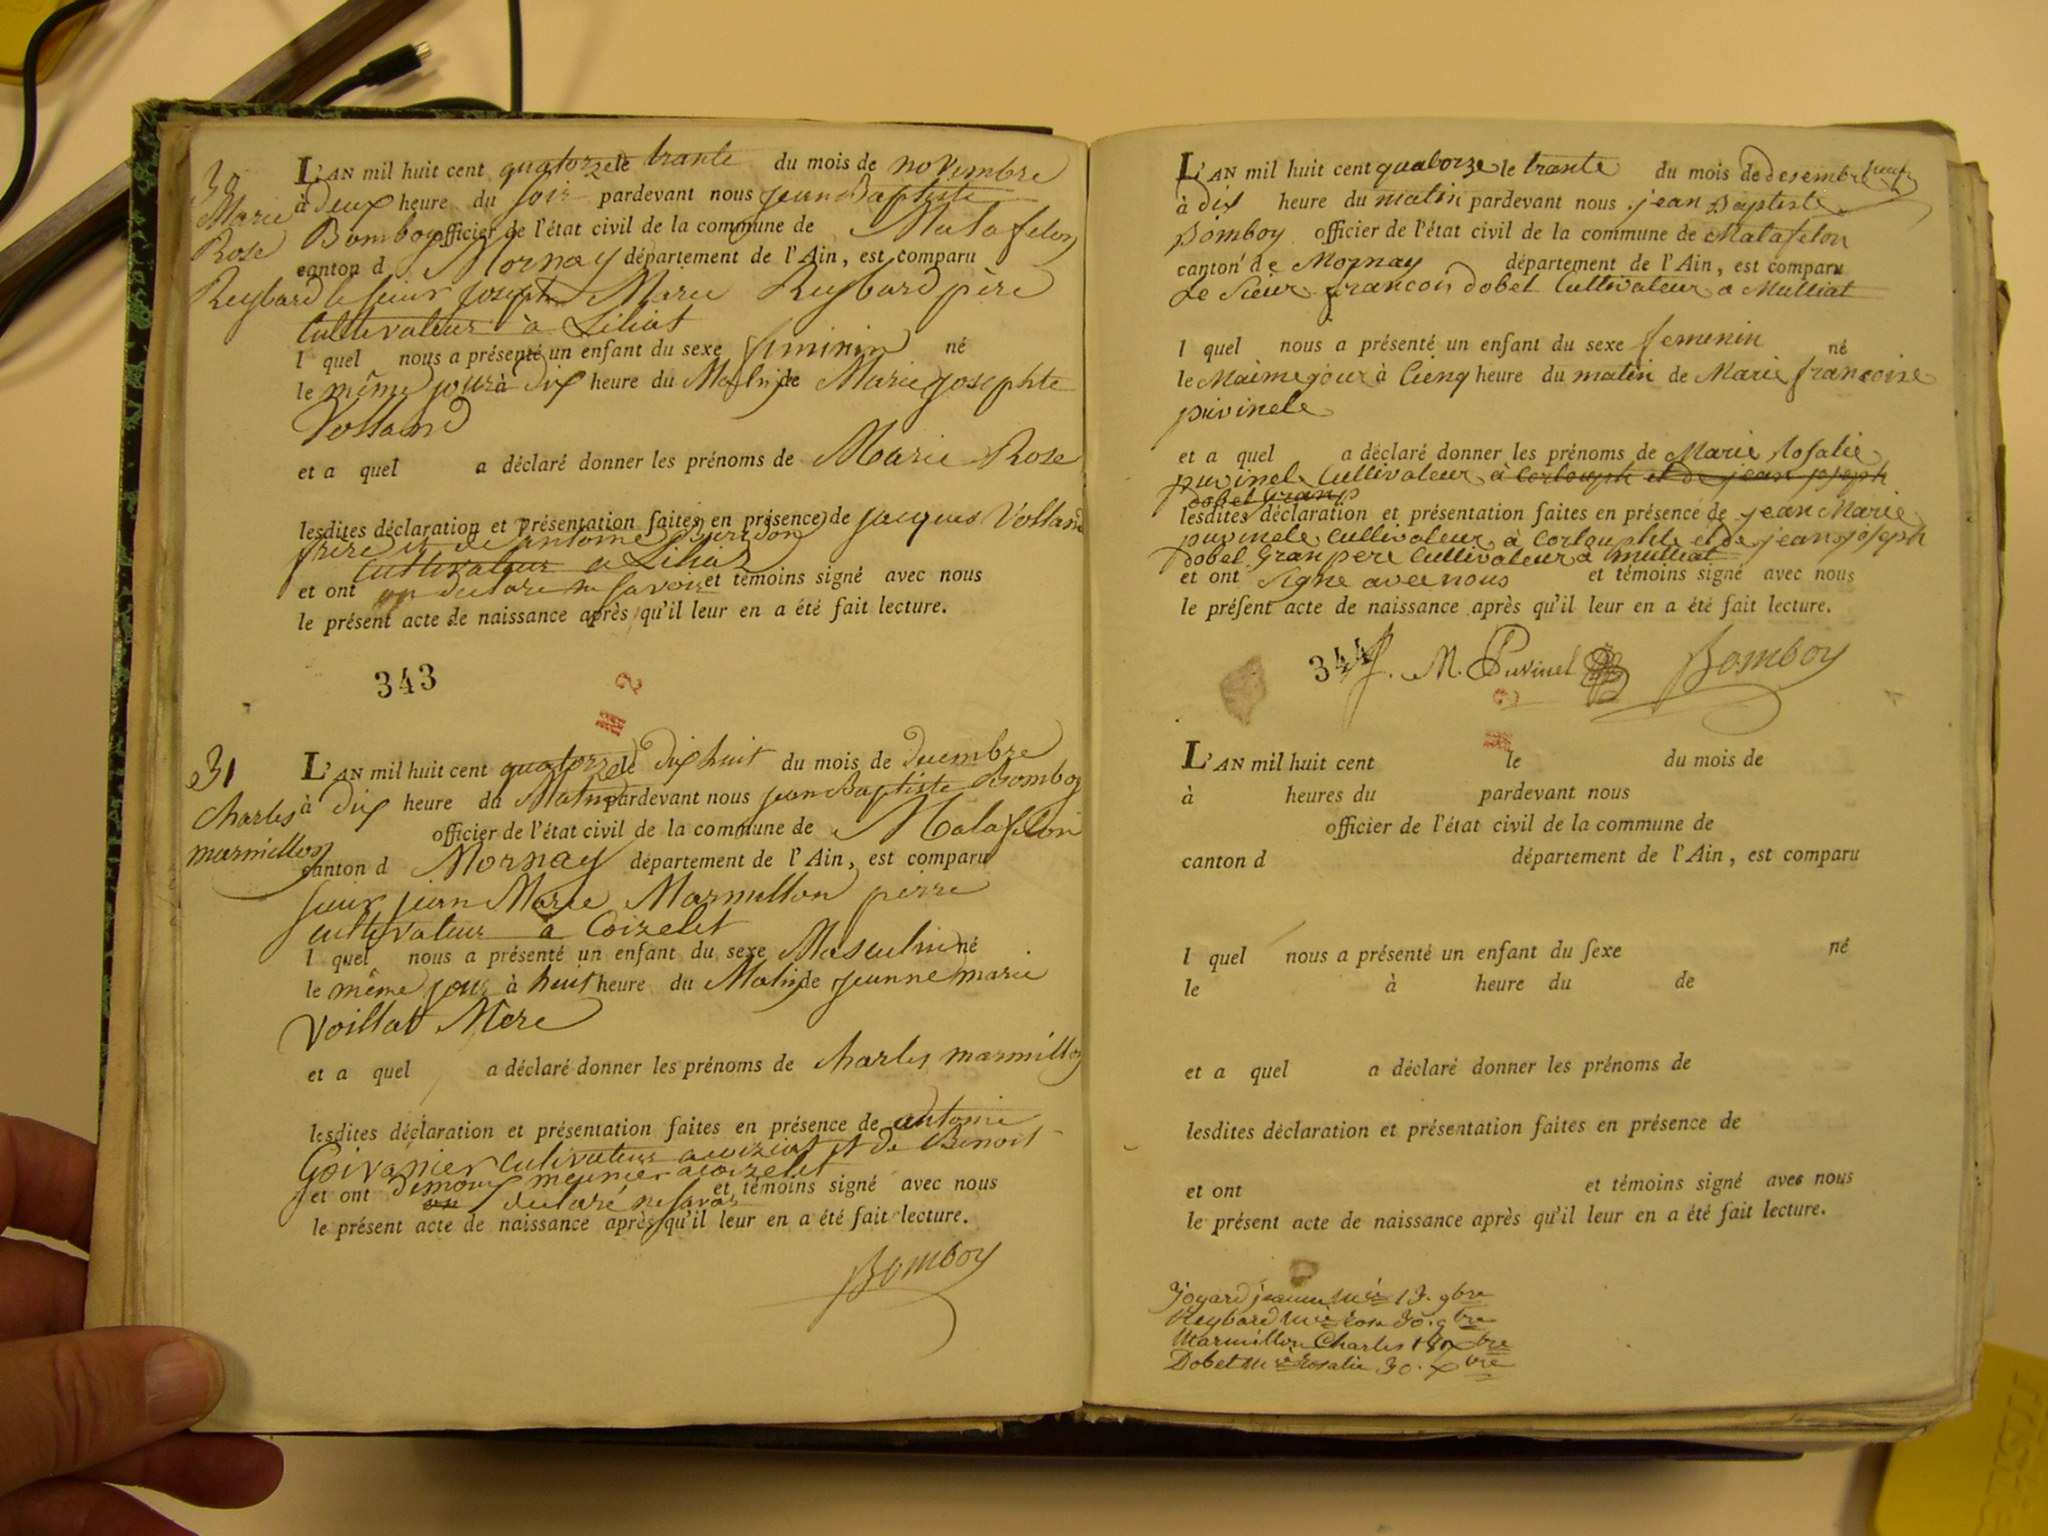 30
Marie
Rose
Reybard
L'AN mil huit cent quatorze le trante du mois de novembre
à deux heure du soir pardevant nous jean Baptiste
Bomboy officier de l'état civil de la commune de Matafelon
canton d Mornay département de l'Ain, est comparu
le sieur joseph Marie Reybard père
cultivateur à Liliat
l quel nous a présenté un enfant du sexe feminin né
le même jour à dix heure du Matin de Marie josephte
Volland
et a quel a déclaré donner les prénoms de Marie Rose
lesdites déclaration et présentation faites en présence de jacques Volland
frère et de antoine
cultivateur a Liliat
et ont on declaré ne savoir et témoins signé avec nous
le présent acte de naissance après qu'il leur en a été fait lecture.
343
31
Charles
marmillon
L'AN mil huit cent quatorze le dix huit du mois de decembre
à dix heure du Matin pardevant nous jean Baptiste Bomboy
officier de l'état civil de la commune de Matafelon
canton d Mornay département de l'Ain, est comparu
sieur jean Marie Marmillon perre
cultivateur a Coizelet
l quel nous a présenté un enfant du sexe Masculin né
le même jour à huit heure du Matin de jeanne marie
Voillat Mère
et a quel a déclaré donner les prénoms de charles marmillon
lesdites déclaration et présentation faites en présence de antoine
cultivateur et de Benoit
meunier a coizelet
et ont declaré ne savoir et témoins signé avec nous
le présent acte de naissance après qu'il leur en a été fait lecture.
Bomboy
L'AN mil huit cent quatorze le trante du mois de desembre
à dix heure du matin pardevant nous jean Baptiste
Bomboy officier de l'état civil de la commune de Matafelon
canton de Mornay département de l'Ain, est comparu
Le Sieur francois dobet Cultivateur a Mulliat
l quel nous a présenté un enfant du sexe femenin né
le Maime jour à Cienq heure du matin de Marie francoise
puvinele
et a quel a déclaré donner les prénoms de Marie Rosalie
puvinel Cultivateur à et de jean joseph
dobet Granp
lesdites déclaration et présentation faites en présence de jean Marie
puvinele Cultivateur à et de jean joseph
dobet Granpere Cultivateur a mulliat
et ont Signe avec nous et témoins signé avec nous
le présent acte de naissance après qu'il leur en a été fait lecture.
344 J. M. Puvinel Bomboy
L'AN mil huit cent le du mois de
à heures du pardevant nous
officier de l'état civil de la commune de
canton d département de l'Ain, est comparu
l quel nous a présenté un enfant du sexe né
le à heure du de
et a quel a déclaré donner les prénoms de
lesdites déclaration et présentation faites en présence de
et ont et témoins signé avec nous
le présent acte de naissance après qu'il leur en a été fait lecture.
Joyard jeanne Mie 13. 9bre
Reybard Mie Rose 30. 9bre
Marmillon Charles 18 Xbre
Dobet Mie Rosalie 30. Xbre